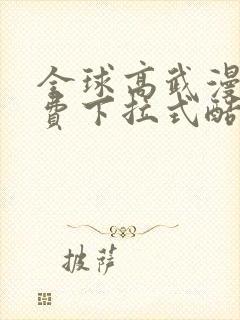 全球高武漫
费下拉式酷
披萨